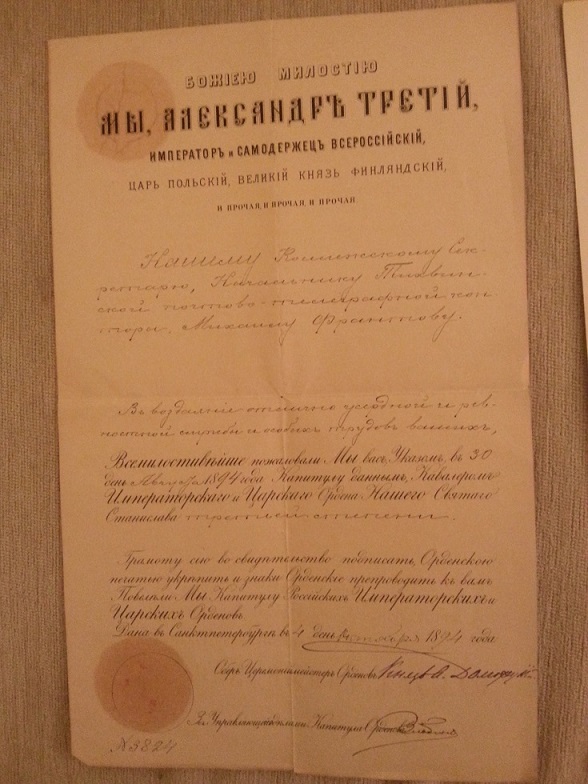 БОЖІЕЮ МИЛОСТІЮ
МЫ, АЛЕКСАНДРЪ ТРЕТІЙ,
ИМПЕРАТОРЪ и САМОДЕРЖЕЦЪ ВСЕРОССІЙСКІЙ,
ЦАРЬ ПОЛЬСКІЙ, ВЕЛИКІЙ КНЯЗЬ ФИНЛЯНДСКІЙ,
И ПРОЧАЯ, И ПРОЧАЯ, И ПРОЧАЯ
Нашему Коллежскому Сек-
ретарю, Начальнику Тихвин-
ской почтово-телеграфной кон
торы, Михаилу Франтову.
Въ воздаяніе отлично усердной и рев-
ностной службы и особыхъ трудовъ вашихъ,
Всемилостивѣйше пожаловали Мы васъ, Указомъ, въ 30
день Августа 1894 года Капитулу даннымъ, Кавалеромъ
Императорскаго и Царскаго Ордена Нашего Святаго
Станислава третьей степени.
Грамоту сію во свидѣтельство подписать, Орденскою
печатью укрѣпить и знаки Орденскіе препроводить къ вамъ
Повелѣли Мы Капитулу Россійскихъ Императорскихъ и
Царскихъ Орденовъ
Дана въ Санктпетербургѣ въ 4 день октября 1894 года
Оберъ Церемоніймейстеръ Орденовъ
За Управляющаго дѣлами Капитула
№ 3824